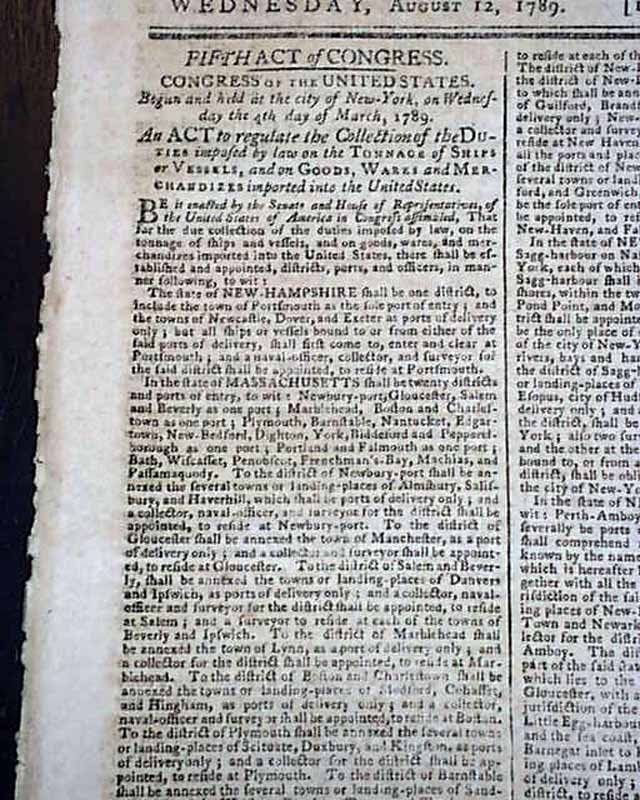 WEDNESDAY, August 12, 1789.
FIFTH ACT of CONGRESS.
CONGRESS OF THE UNITED STATES.
Begun and held at the city of New-York, on Wednes-
day the 4th day of March, 1789.
An ACT to regulate the Collection of the DU-
TIES imposed by law on the TONNAGE of SHIPS
or VESSELS, and on GOODS, WARES and MER-
CHANDIZES imported into the United States.
BE it enacted by the Senate and House of Representatives, of
the United States of America in Congress assembled, That
for the due collection of the duties imposed by law, on the
tonnage of ships and vessels, and on goods, wares, and mer-
chandizes imported into the United States, there shall be es-
tablished and appointed, districts, ports, and officers, in man-
ner following, to wit:
The state of NEW-HAMPSHIRE shall be one district, to
include the town of Portsmouth as the sole port of entry; and
the towns of Newcastle, Dover, and Exeter as ports of delivery
only; but all ships or vessels bound to or from either of the
said ports of delivery, shall first come to, enter and clear at
Portsmouth; and a naval-officer, collector, and surveyor for
the said district shall be appointed, to reside at Portsmouth.
In the state of MASSACHUSETTS shall be twenty districts
and ports of entry, to wit: Newbury-port, Gloucester, Salem
and Beverly as one port; Marblehead, Boston and Charles-
town as one port; Plymouth, Barnstable, Nantucket, Edgar-
town, New-Bedford, Dighton, York, Biddeford and Pepperel-
borough as one port; Portland and Falmouth as one port;
Bath, Wiscasset, Penobscot, Frenchman's-Bay, Machias, and
Passamaquody. To the district of Newbury-port shall be an-
nexed the several towns or landing-places of Almsbury, Salis-
bury, and Haverhill, which shall be ports of delivery only; and
a collector, naval-officer, and surveyor for the district shall be
appointed, to reside at Newbury-port. To the district of
Gloucester shall be annexed the town of Manchester, as a port
of delivery only; and a collector and surveyor shall be appoint-
ed, to reside at Gloucester. To the district of Salem and Bever-
ly, shall be annexed the towns or landing-places of Danvers
and Ipswich, as ports of delivery only; and a collector, naval-
officer and surveyor for the district shall be appointed, to reside
at Salem; and a surveyor to reside at each of the towns of
Beverly and Ipswich. To the district of Marblehead shall
be annexed the town of Lynn, as a port of delivery only; and
a collector for the district shall be appointed, to reside at Mar-
blehead. To the district of Boston and Charlestown shall be
annexed the towns or landing-places of Medford, Cohasset,
and Hingham, as ports of delivery only; and a collector,
naval-officer and surveyor shall be appointed, to reside at Boston.
To the district of Plymouth shall be annexed the several towns
or landing-places of Scituate, Duxbury, and Kingston, as ports
of delivery only; and a collector for the district shall be ap-
pointed, to reside at Plymouth. To the district of Barnstable
shall be annexed the several towns or landing-places of Sand-
to reside at each of th
The district of New-
the district of New-
to which shall be ann
of Guilford, Brand
delivery only; New-
a collector and survey
reside at New Haven
all the ports and place
of the district of New
several towns or landi
ford, and Greenwich
be the sole port of ent
be appointed, to resi
New-Haven, and Fai
In the state of NE
Sagg-harbour on Na
York, each of which
Sagg-harbour shall i
shores, within the tw
Pond Point, and Mo
trict shall be appoint
be the only place of
of the city of New-Y
rivers, bays and har
the district of Sagg-h
or landing-places of
Esopus, city of Hud
delivery only; and
the district, shall be
York; also two sur
and the other at the
bound to, or from a
district, shall be obli
the city of New-Yo
In the state of NE
wit: Perth-Amboy
severally be ports o
shall comprehend
known by the name
which is hereafter
gether with all the
risdiction of the sai
ing places of New-
Town and Newark
lector for the distri
Amboy. The dist
part of the said stat
which lies to the
Gloucester, with
jurisdiction of the
Little Egg-harbour
and the sea coast,
Barnegat inlet to
ing places of Lamb
of delivery only;
district, to reside